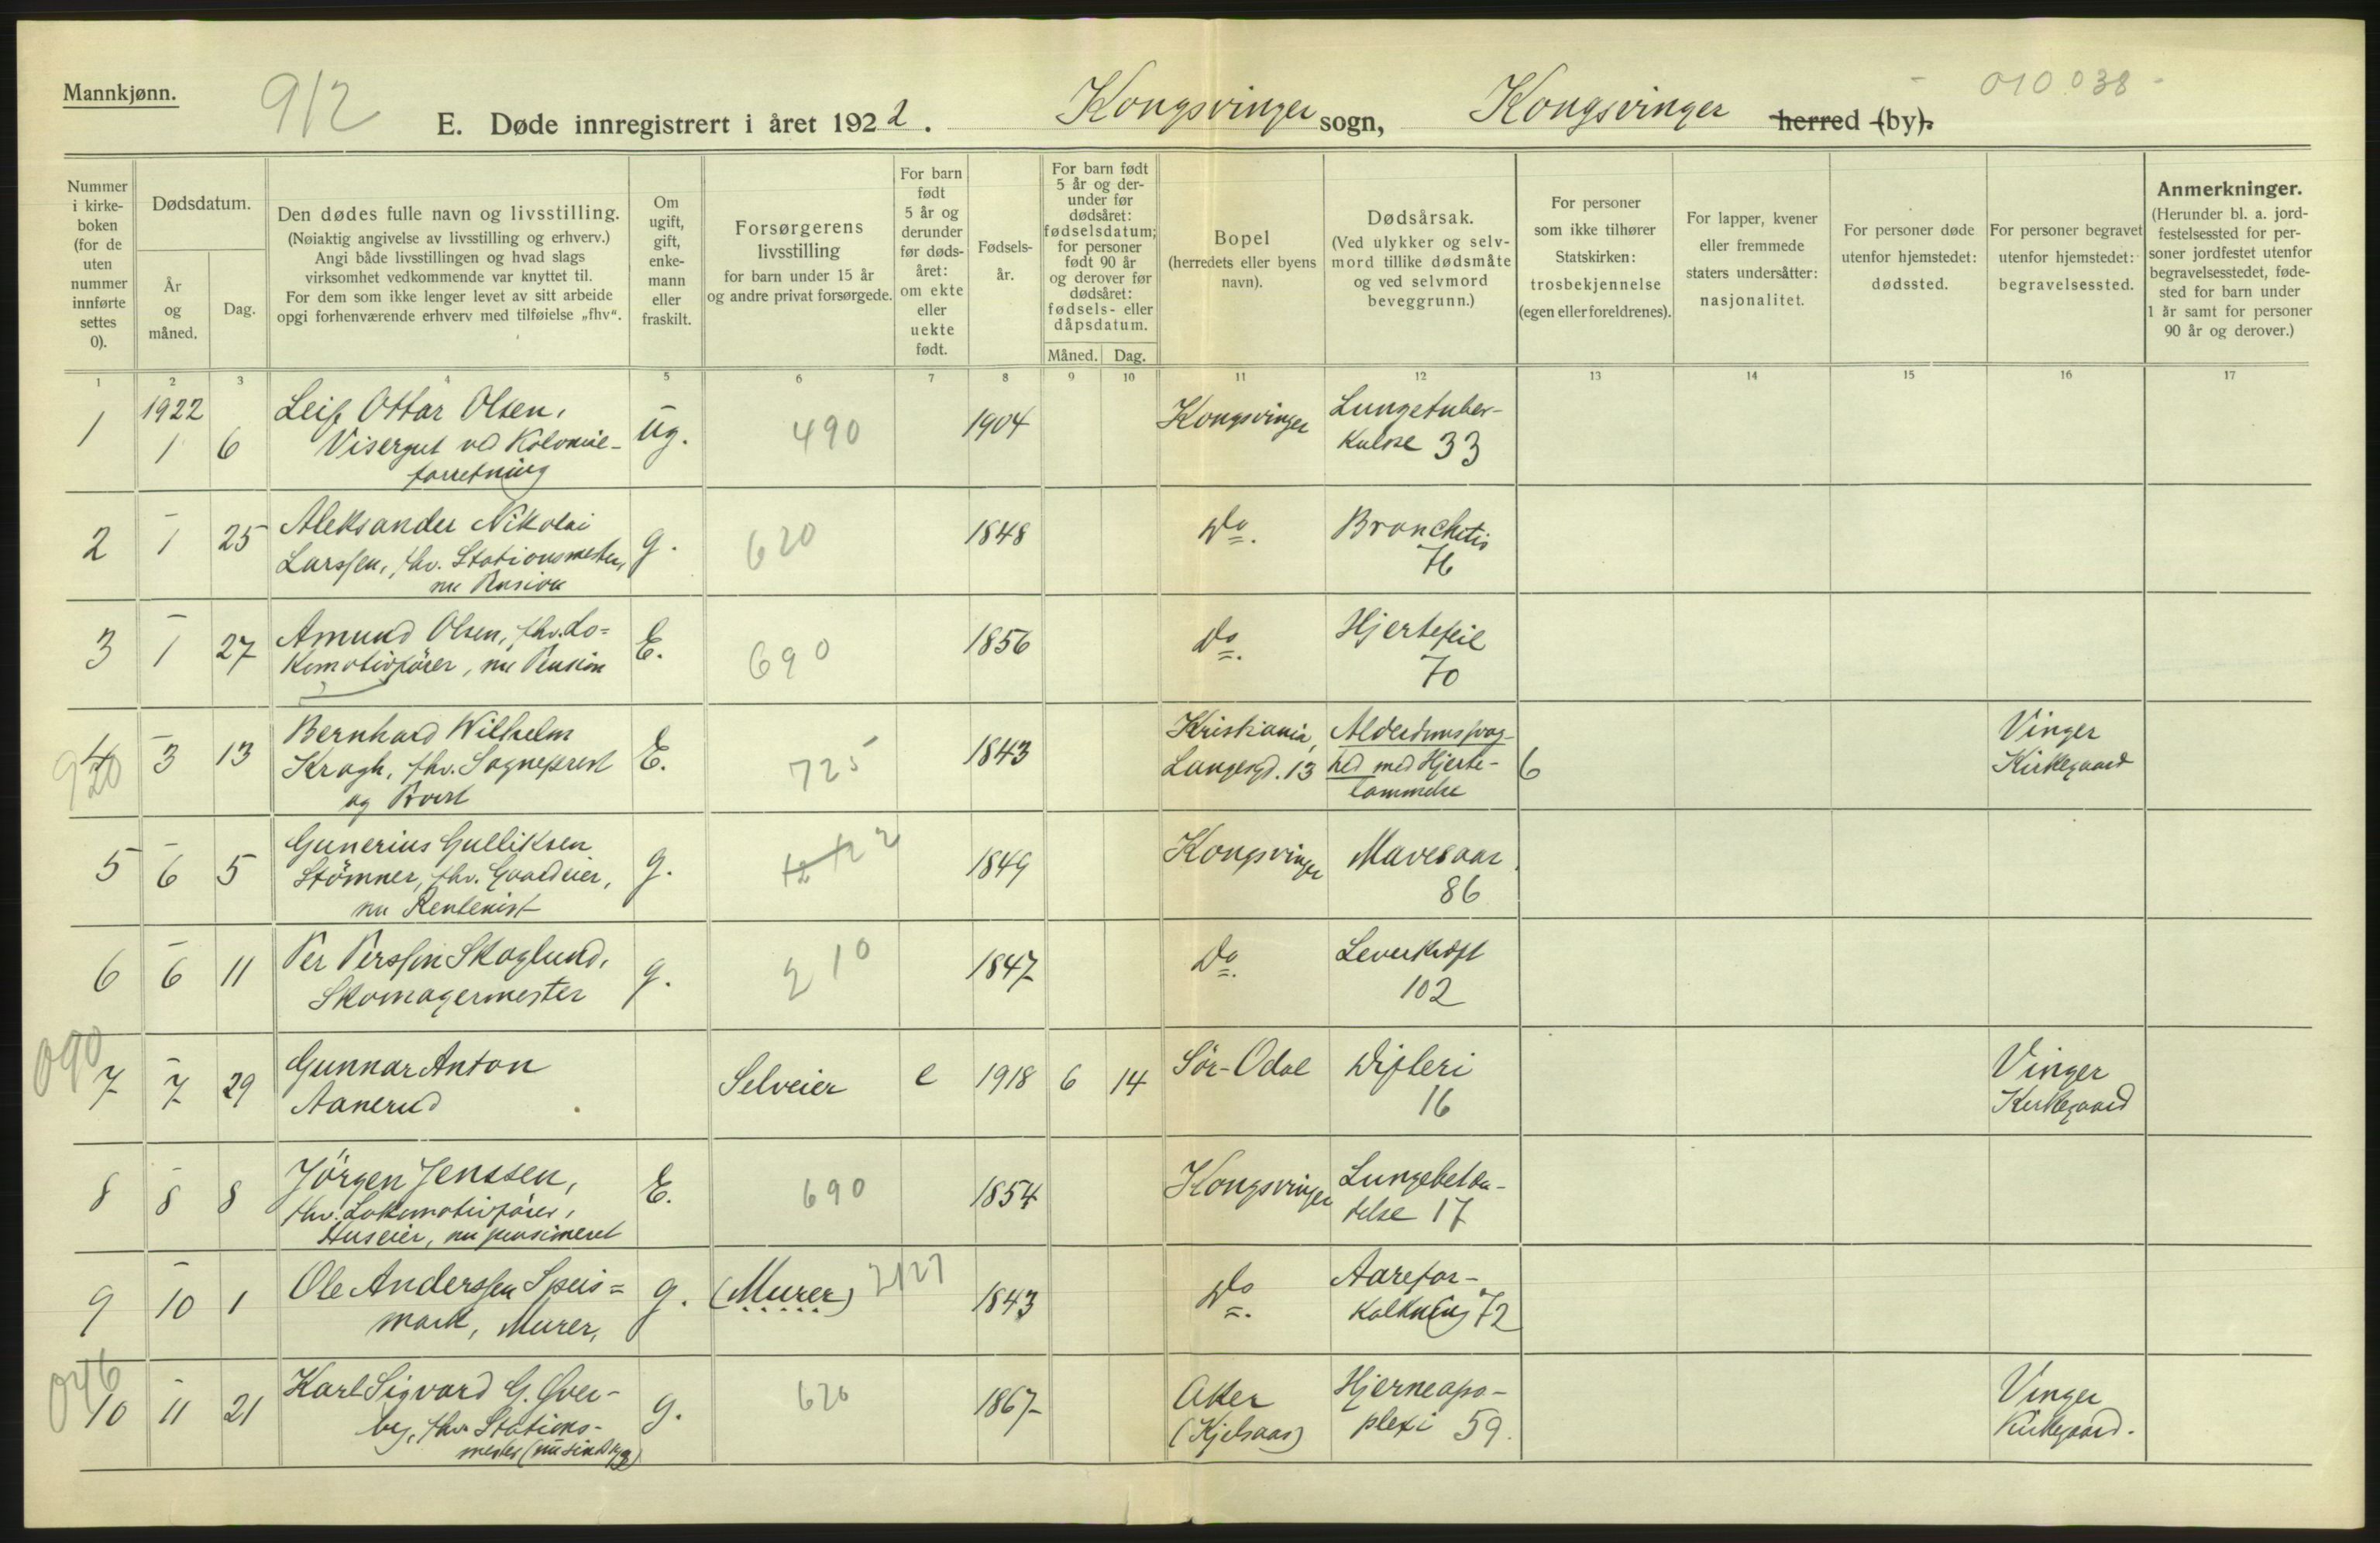 Mannkjønn.
912
010.038
E. Døde innregistrert i året 1922. Kongsvinger sogn, Kongsvinger herred (by).
Nummer i kirkeboken (for de uten nummer innførte settes 0).
Dødsdatum.
År og måned.
Dag.
Den dødes fulle navn og livsstilling.
(Nøiaktig angivelse av livsstilling og erhverv.)
Angi både livsstillingen og hvad slags
virksomhet vedkommende var knyttet til.
For dem som ikke lenger levet av sitt arbeide
opgi forhenværende erhverv med tilføielse „fhv“.
Om ugift, gift, enkemann eller fraskilt.
Forsørgerens livsstilling
for barn under 15 år
og andre privat forsørgede.
For barn født 5 år og derunder før dødsåret: om ekte eller uekte født.
Fødselsår.
For barn født 5 år og derunder før dødsåret: fødselsdatum; for personer født 90 år og derover før dødsåret: fødsels- eller dåpsdatum.
Måned. Dag.
Bopel
(herredets eller byens navn).
Dødsårsak.
(Ved ulykker og selvmord tillike dødsmåte og ved selvmord beveggrunn.)
For personer som ikke tilhører Statskirken: trosbekjennelse (egen eller foreldrenes).
For lapper, kvener eller fremmede staters undersåtter: nasjonalitet.
For personer døde utenfor hjemstedet: dødssted.
For personer begravet utenfor hjemstedet: begravelsessted.
Anmerkninger.
(Herunder bl. a. jordfestelsessted for personer jordfestet utenfor begravelsesstedet, fødested for barn under 1 år samt for personer 90 år og derover.)
1 2 3 4 5 6 7 8 9 10 11 12 13 14 15 16 17
1 1922 1 6 Leif Ottar Olsen, ug. 490 1904 Kongsvinger Lungetuber-
Visergut ved Kolonial- kulose 33
forretning
2 – 1 25 Aleksander Nikolai g. 620 1848 Do. Bronchitis
Larssen, fhv. Stationsmester, 76
nu Pension
3 – 1 27 Amund Olsen, fhv. Lo= E. 690 1856 Do. Hjertefeil
komotivfører, nu Pension 70
4 – 3 13 Bernhard Wilhelm E. 725 1843 Kristiania, Alderdomssvag- Vinger
920 Kragh, fhv. Sogneprest Langesgd. 13 hed med Hjerte- 6 Kirkegaard
og Provst lammelse
5 – 6 5 Gunerius Gulliksen g. 1849 Kongsvinger Mavesaar
Stömner, fhv. Gaardeier, 86
nu Rentenist
6 – 6 11 Per Perssen Skoglund, g. 210 1847 Do. Leverkræft
Skomagermester 102
090
7 – 7 29 Gunnar Anton Selveier e 1918 6 14 Sör-Odal Difteri Vinger
Aanerud 16 Kirkegaard
8 – 8 8 Jörgen Jenssen, E. 690 1854 Kongsvinger Lungebetæn-
fhv. Lokomotivfører, delse 17
Huseier, nu pensioneret
9 – 10 1 Ole Anderssen Speis= g. (Murer) 2127 1843 Do. Aarefor-
mark, Murer, kalkning 72
046
10 – 11 21 Karl Sigvard G. Øver- g. 620 1867 Aker Hjerneapo- Vinger
by, fhv. Stations- (Kjelsaas) plexi 59. Kirkegaard.
mester (nu sindssyg)